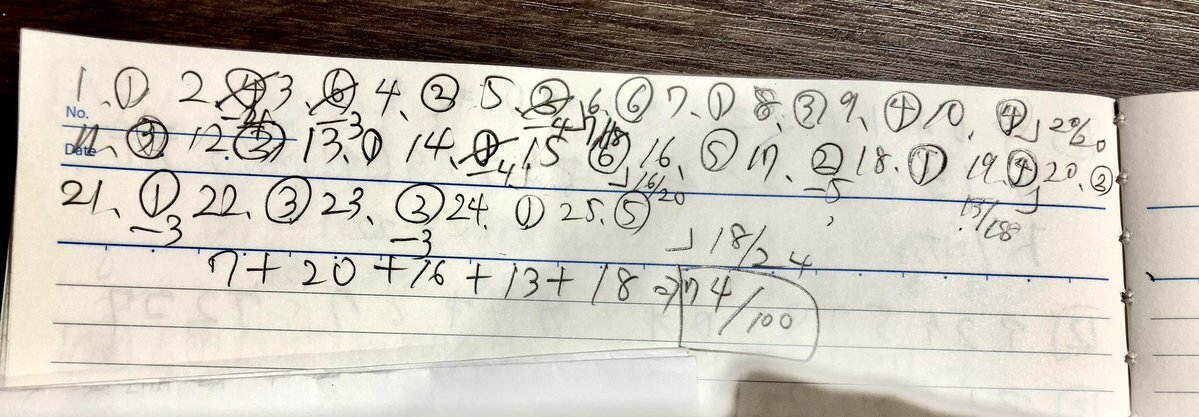 1. ① 2. ④ 3. ⑥ 4. ② 5. ② 6. ⑥ 7. ① 8. ③ 9. ④ 10. ④ 20/20
No. -3 -4 7/18
Date 11. ③ 12. ③ 13. ① 14. ① 15. ⑥ 16. ⑤ 17. ② 18. ① 19. ④ 20. ③
-4 16/20 -5 13/18
21. ① 22. ③ 23. ③ 24. ① 25. ⑤
-3 -3 18/24
7 + 20 + 16 + 13 + 18 ⇒ 74/100